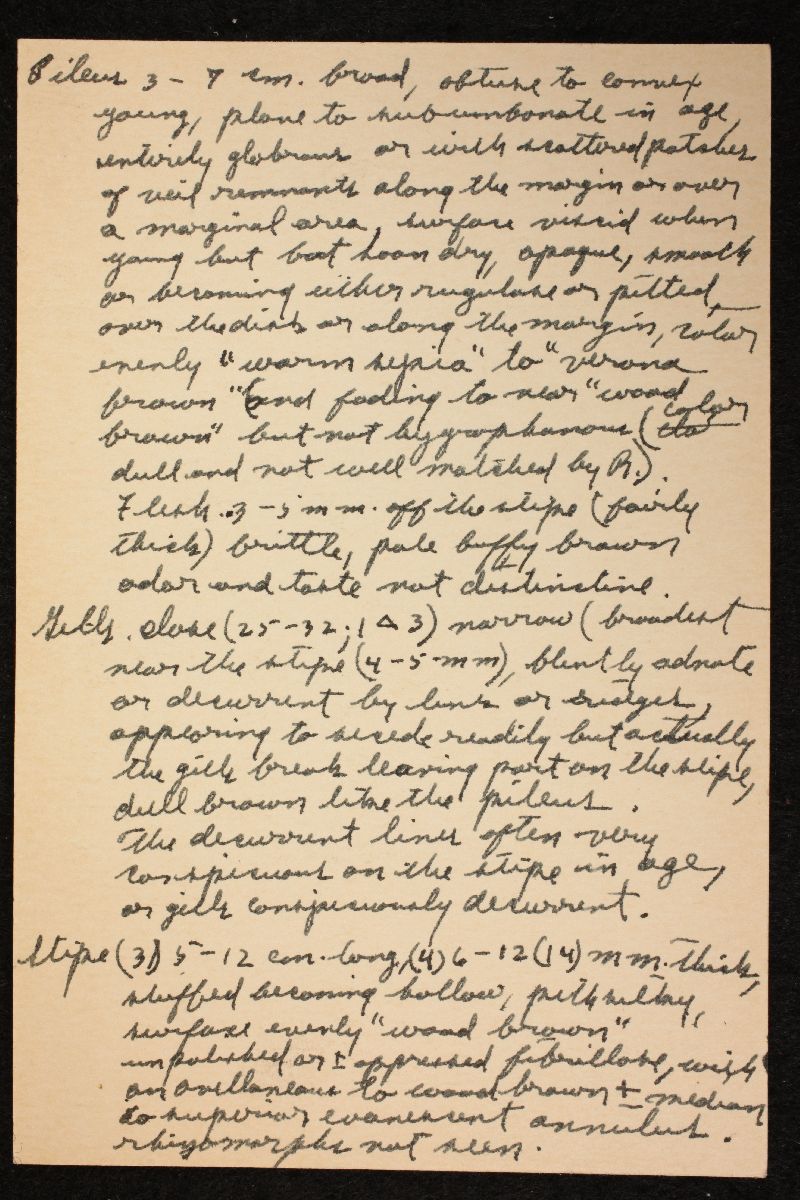 Pileus 3 - 7 cm. broad, obtuse to convex
young, plane to subumbonate in age,
entirely glabrous or with scattered patches
of veil remnants along the margin or over
a marginal area, surface viscid when
young but but soon dry, opaque, smooth
or becoming either rugulose or pitted
over the disk or along the margin, color
evenly "warm sepia" to "verona
brown" (and fading to near "wood
brown" but not hygrophanous (color
dull and not well matched by R.).
Flesh .3 - 5 mm. off the stipe (fairly
thick) brittle, pale buffy brown
odor and taste not distinctive.
Gills. close (25 - 32; 1 △ 3) narrow (broadest
near the stipe (4 - 5 mm), bluntly adnate
or decurrent by lines or ridges,
appearing to secede readily but actually
the gills break leaving part on the stipe,
dull brown like the pileus.
The decurrent lines often very
conspicuous on the stipe in age,
or gills conspicuously decurrent.
Stipe (3) 5 - 12 cm. long, (4) 6 - 12 (14) mm. thick,
stuffed becoming hollow, pith silky,
surface evenly "wood brown"
unpolished or ± appressed fibrillose, with
an avellaneous to wood brown ± median
to superior evanescent annulus.
rhizomorphs not seen.